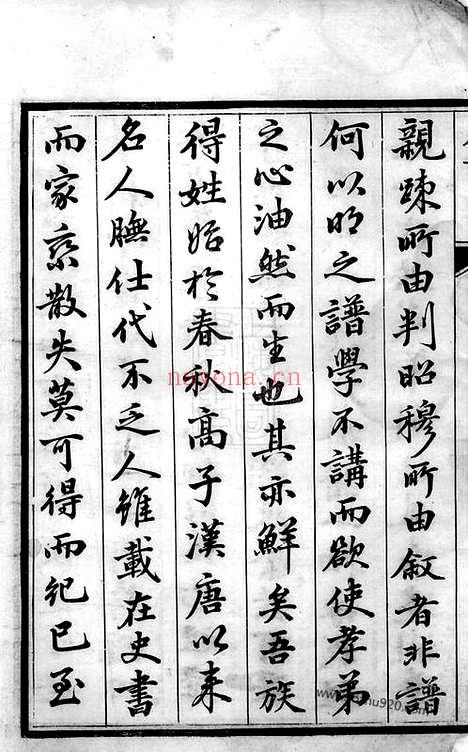 親踈所由判昭穆所由敘者非譜
何以明之譜學不講而欲使孝弟
之心油然而生也其亦鮮矣吾族
得姓始於春秋高子漢唐以来
名人膴仕代不乏人雖載在史書
而家乘散失莫可得而纪已至
nayona.cn